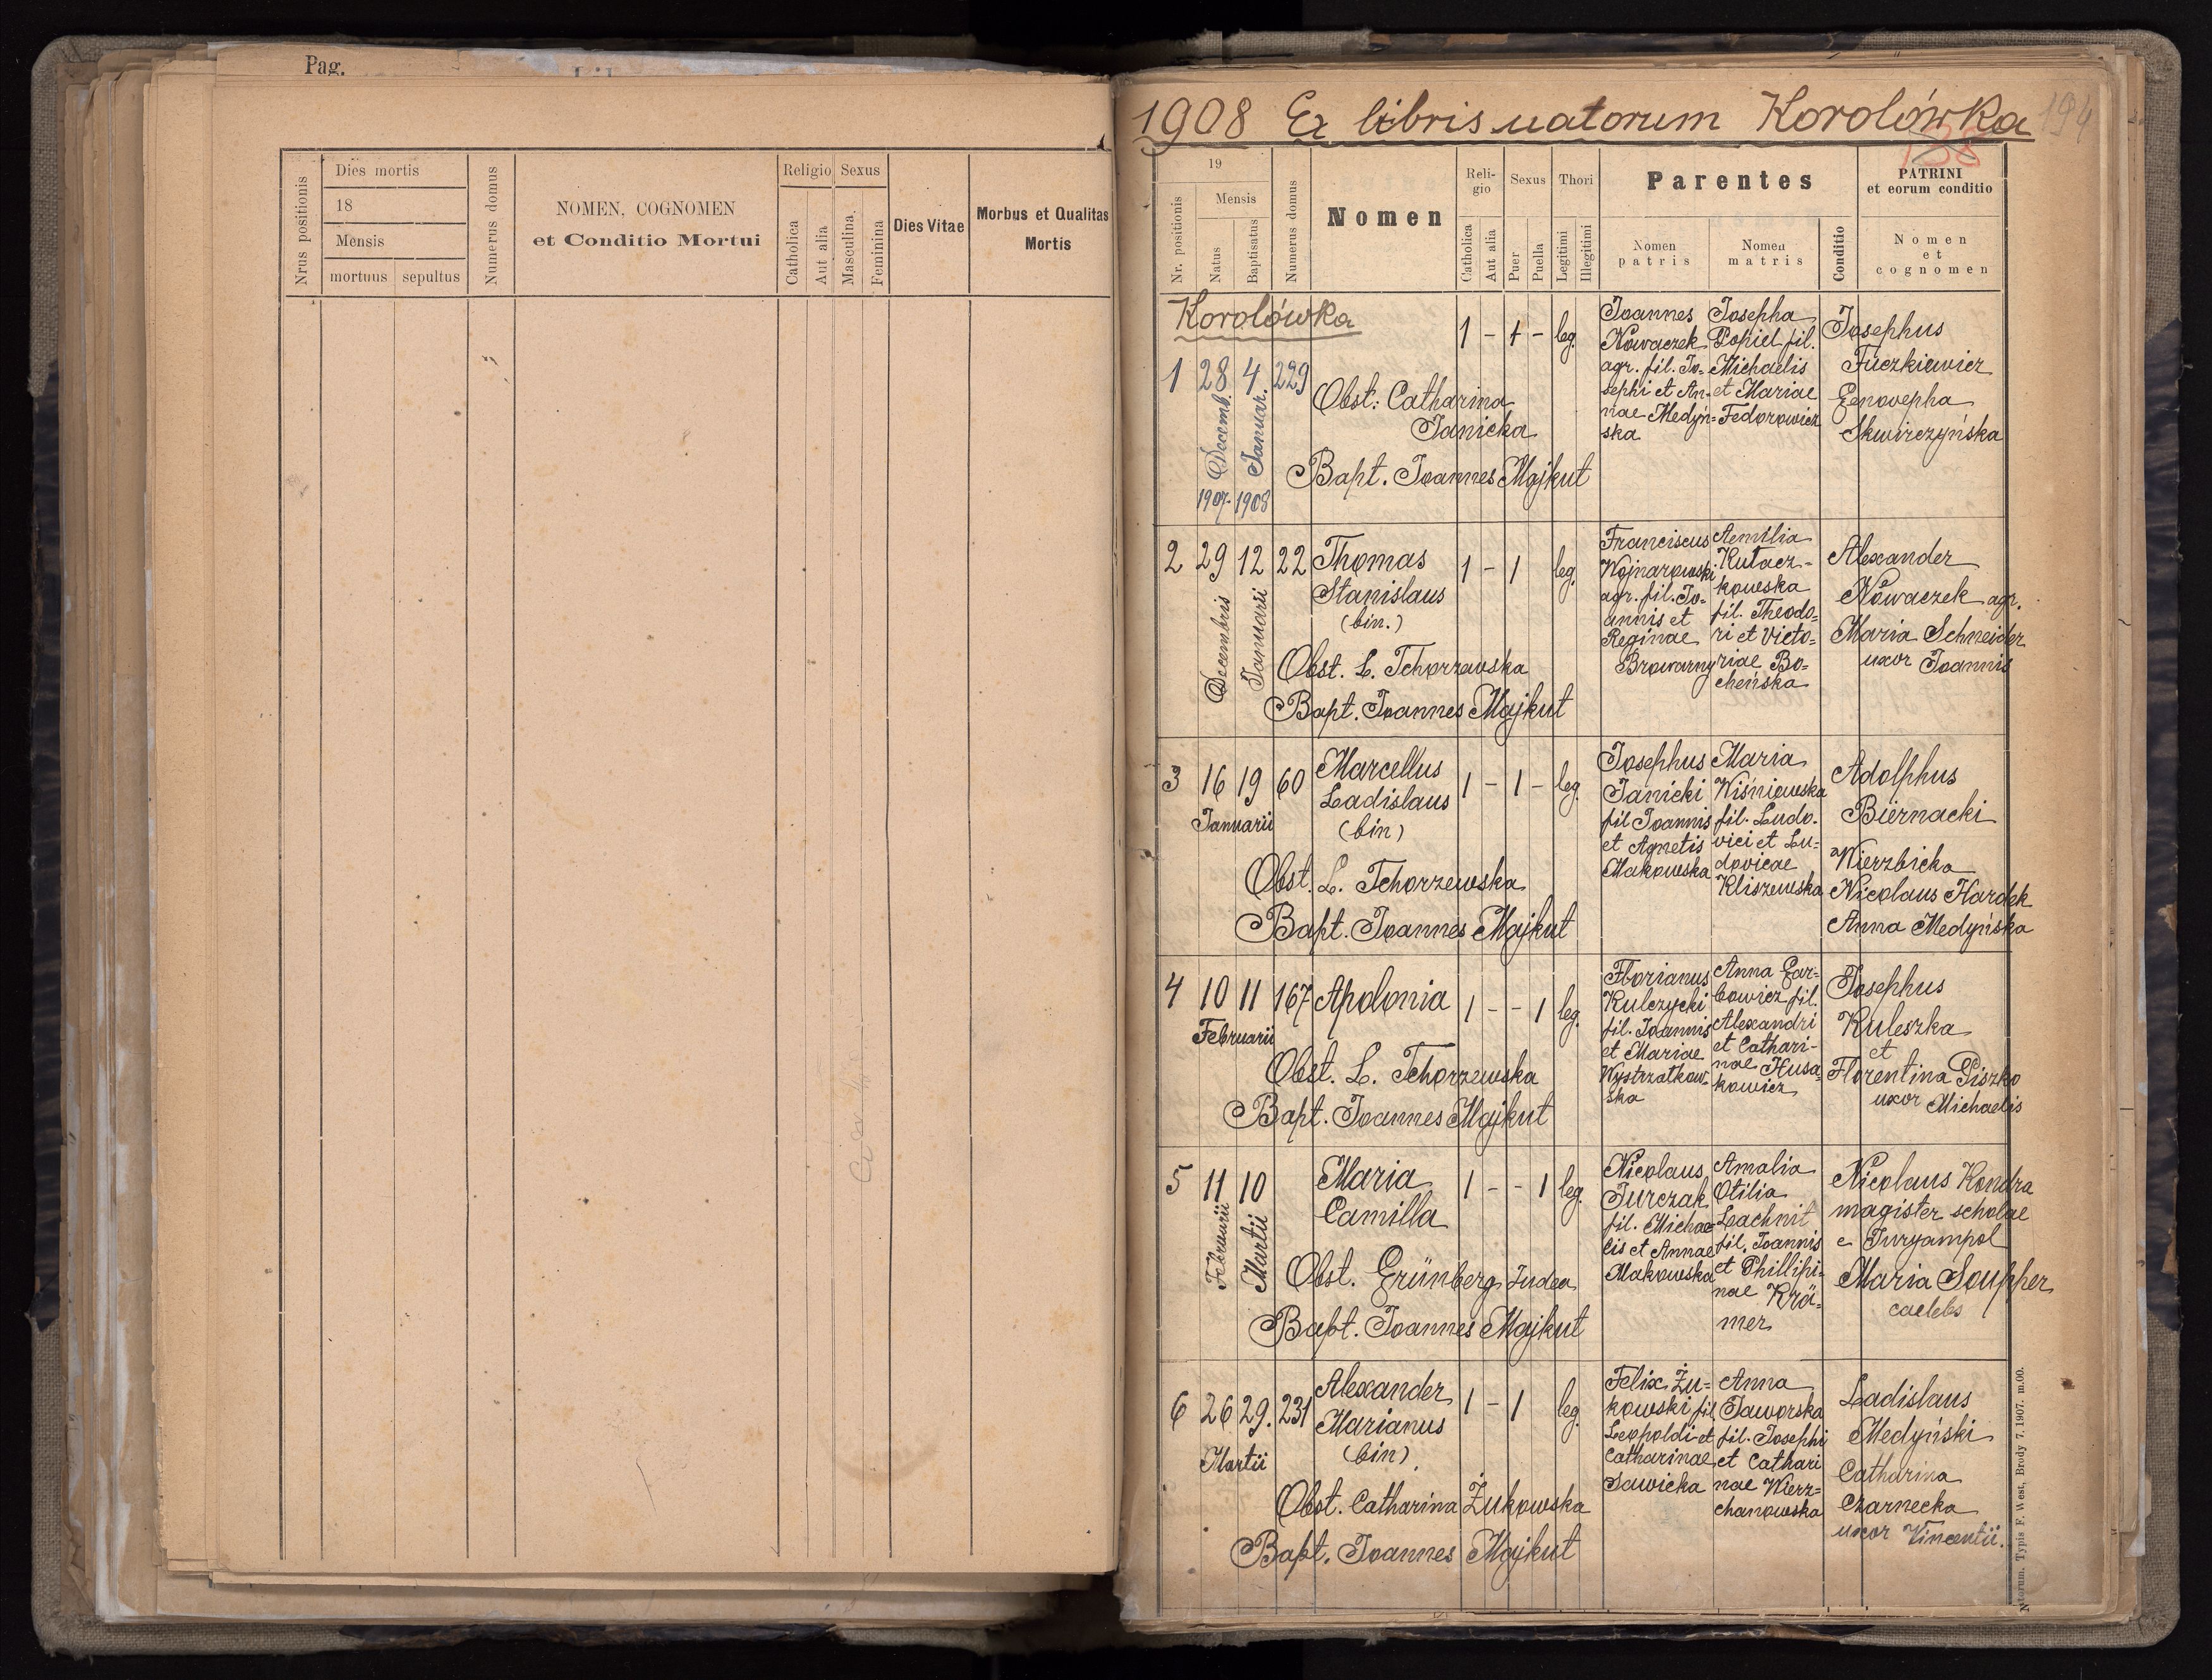 Pag.
Nrus positionis
Dies mortis
18
Mensis
mortuus sepultus
Numerus domus
NOMEN, COGNOMEN
et Conditio Mortui
Religio Sexus
Catholica
Aut alia
Masculina
Feminina
Dies Vitae
Morbus et Qualitas
Mortis
1908 Ex libris natorum Korolówka
194
138
Nr. positionis
19
Mensis
Natus
Baptisatus
Numerus domus
Nomen
Reli-
gio
Catholica
Aut alia
Sexus
Puer
Puella
Thori
Legitimi
Illegitimi
Parentes
Nomen
patris
Nomen
matris
PATRINI
et eorum conditio
Conditio
Nomen
et
cognomen
Korolówka
1 28 4 229
Decemb. Januar.
1907. 1908
Obst: Catharina
Janicka
Bapt. Joannes Majkut
1 - 1 - leg.
Joannes
Nowaczek
agr. fil. Jo-
sephi et An-
nae Medyń-
ska
Josepha
Popiel fil.
Michaelis
et Mariae
Fedorowicz
Josephus
Fuczkiewicz
Genovepha
Skwirczyńska
2 29 12 22 Thomas
Decembris Januarii
Stanislaus
(bin.)
Obst. L. Tchorzewska
Bapt. Joannes Majkut
1 - 1 leg.
Franciscus
Wojnarowski
agr. fil. Jo-
annis et
Reginae
Browarny
Aemilia
Kutacz-
kowska
fil. Theodo-
ri et Victo-
riae Bo-
cheńska
Alexander
Nowaczek agr.
Maria Schneider
uxor Joannis
3 16 19 60 Marcellus
Januarii
Ladislaus
(bin)
Obst. L. Tchorzewska
Bapt. Joannes Majkut
1 - 1 - leg.
Josephus
Janicki
fil Joannis
et Agnetis
Makowska
Maria
Wiśniowska
fil. Ludo-
vici et Lu-
dovicae
Kliszewska
Adolphus
Biernacki
Wierzbicka
Nicolaus Hardek
Anna Medyńska
4 10 11 167 Apolonia
Februarii
Obst. L. Tchorzewska
Bapt. Joannes Majkut
1 - - 1 leg.
Florianus
Kulczycki
fil. Joannis
et Mariae
Wystrzatkow-
ska
Anna Gar-
bowicz fil.
Alexandri
et Cathari-
nae Husa-
kowicz
Josephus
Kuleszka
et
Florentina Piszko
uxor Michaelis
5 11 10 Maria
Februarii Martii
Camilla
Obst. Grünberg Judea
Bapt. Joannes Majkut
1 - - 1 leg.
Nicolaus
Jurczak
fil. Michae-
lis et Annae
Makowska
Amalia
Otilia
Lachnit
fil. Joannis
et Phillipi-
nae Krä-
mer
Nicolaus Kondra
magister scholae
e Juryampol
Maria Soupper
caelebs
6 26 29. 231 Alexander
Martii
Marianus
(bin)
Obst. Catharina Żukowska
Bapt. Joannes Majkut
1 - 1 leg.
Felix Żu-
kowski fil.
Leopoldi et
Catharinae
Sawicka
Anna
Jaworska
fil. Josephi
et Cathari
nae Wierz-
chanowska
Ladislaus
Medyński
Catharina
Czarnecka
uxor Vincentii.
Natorum. Typis F. West, Brody 7.1907. m.00.